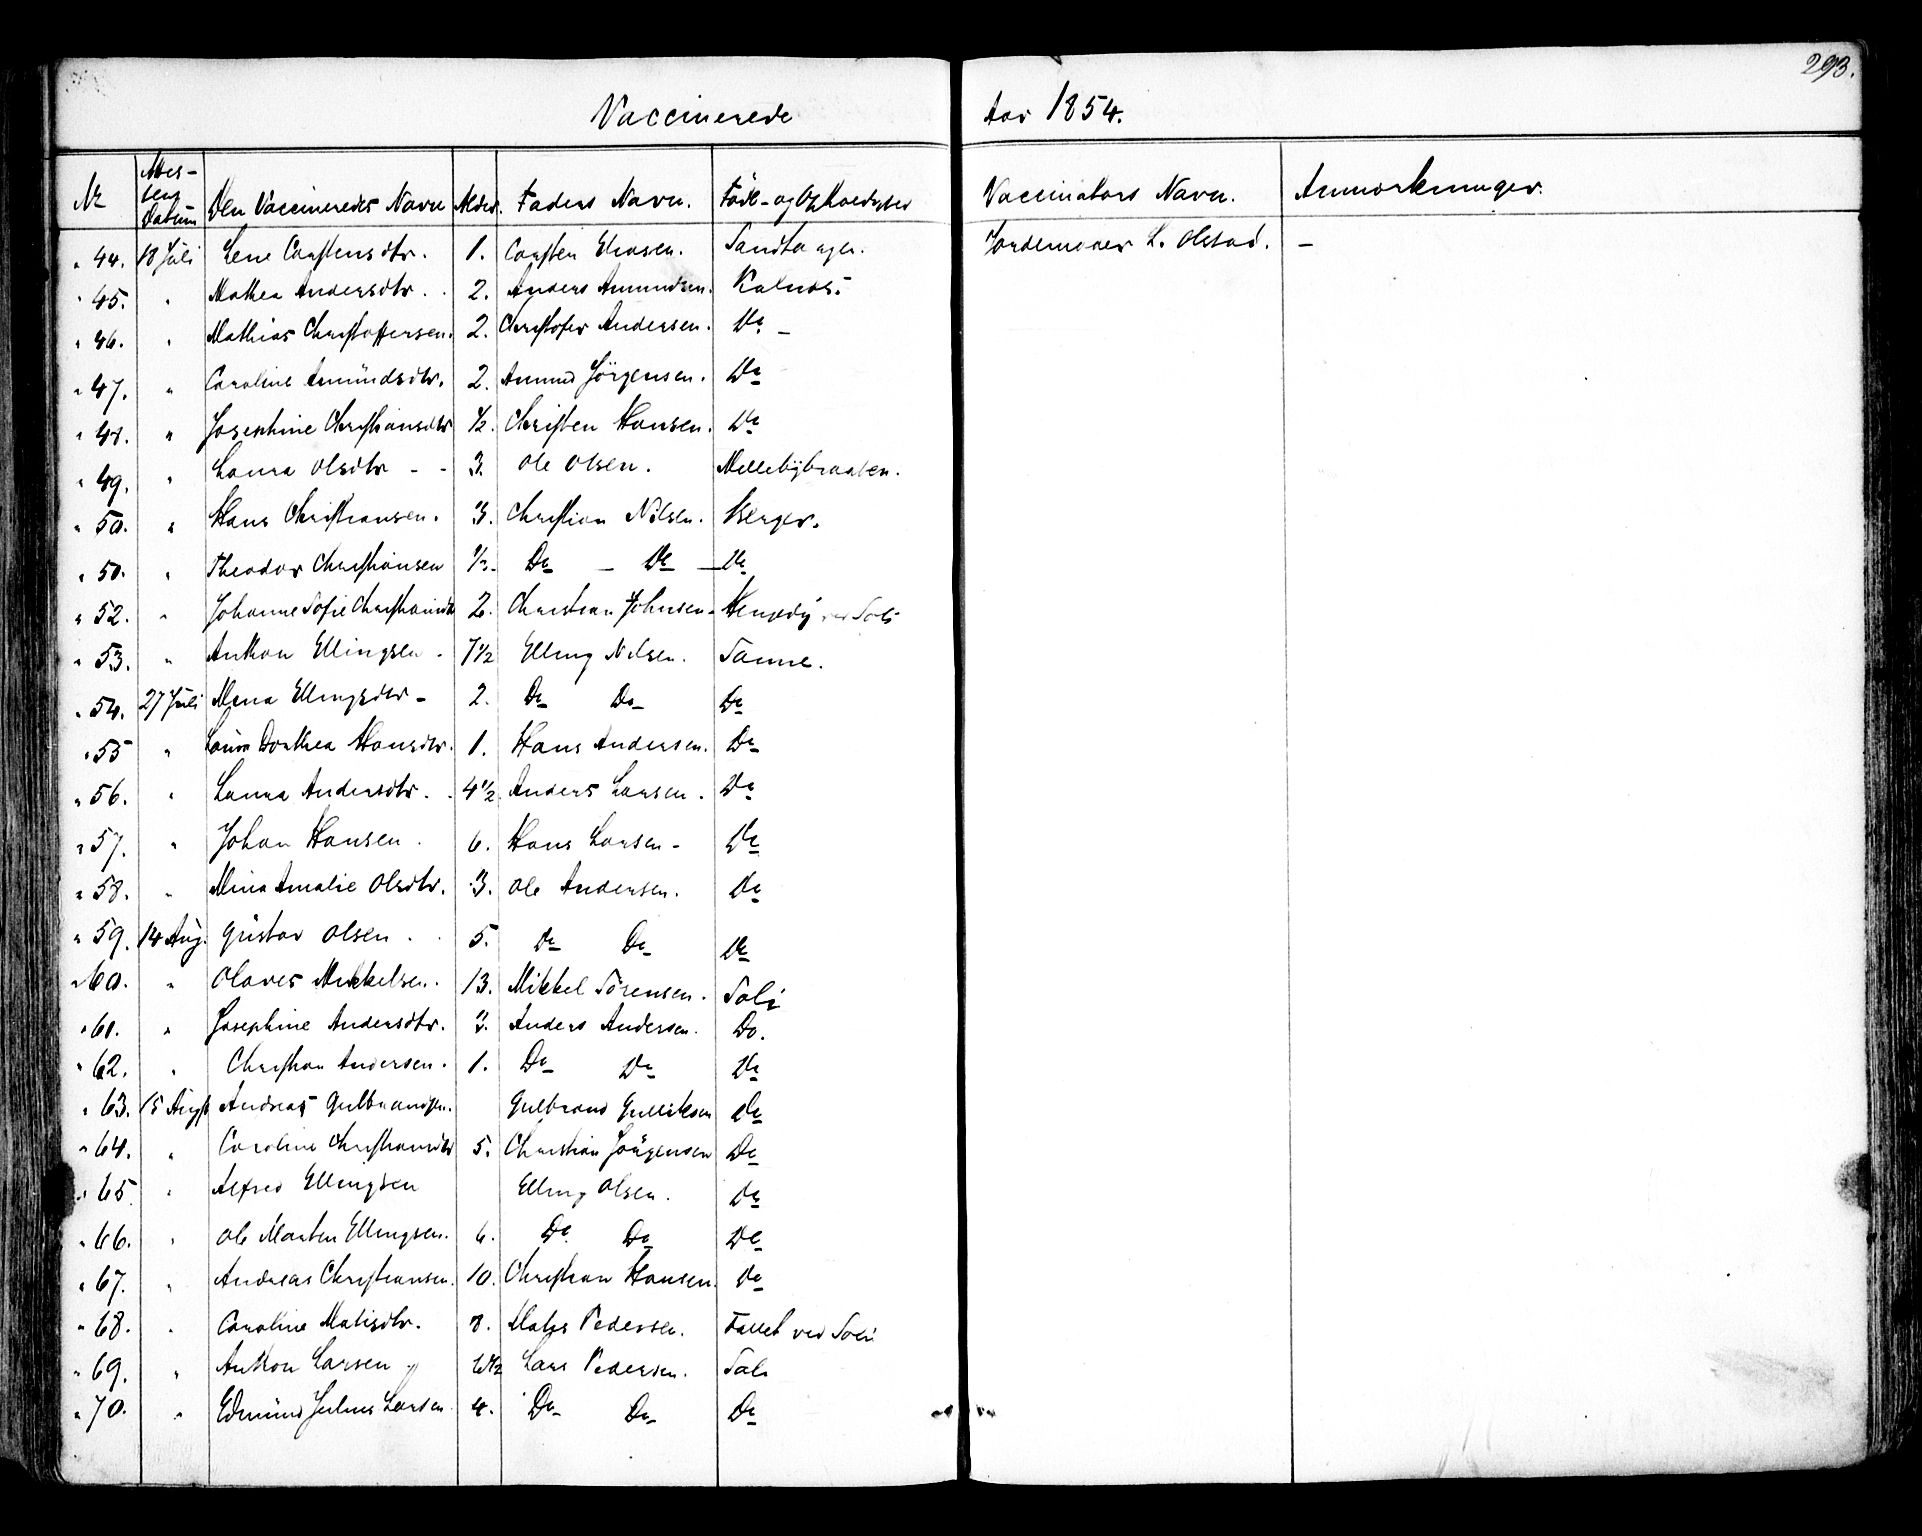 293.
Vaccinerede Aar 1854.
Nr Attestens Datum Den Vaccineredes Navn Alder. Faders Navn. Føde- og Opholdssted Vaccinators Navn. Anmærkninger.
" 44. 18 Juli Lene Carstensdtr. 1. Carsten Eliasen. Sandtangen. Jordemoder L. Olstad. –
" 45. " Mathea Andersdtr. 2. Anders Amundsen. Kalnæs.
" 46. " Mathias Christoffersen. 2. Christofer Andersen. Do –
" 47. " Caroline Amündsdtr. 2. Amund Jörgensen. Do
" 48. " Josephine Christiansdtr ½. Christen Hansen. Do
" 49. " Laura Olsdtr - - 3. Ole Olsen. Mellebybraaten.
" 50. " Hans Christiansen. 3. Christian Nilsen. Berger.
" 50. " Theodor Christiansen ½. Do – Do – Do
" 52. " Johanne Sofie Christiansdtr 2. Christian Johnsen - ved Soli
" 53. " Anthon Ellingsen - 7½ Elling Nilsen. Sanne.
" 54. 27 Juli Mina Ellingsdtr - 2. Do Do Do
" 55 " Laura Dorthea Hansdtr. 1. Hans Andersen. Do
" 56. " Laura Andersdtr. 4½ Anders Larsen. Do
" 57. " Johan Hansen. 6. Hans Larsen - Do
" 58. " Mina Amalie Olsdtr. 3. Ole Andersen. Do
" 59. 14 Aug. Güstav Olsen. 5. Do Do Do
" 60. " Olaves Mikkelsen. 13. Mikkel Sörensen. Soli
" 61. " Josephine Andersdtr. 3. Anders Andersen. Do.
" 62. " Christian Andersen. 1. Do Do Do
" 63. 15 Augst Andreas Gulbrandsen. Gulbrand Gulliksen Do
" 64. " Caroline Christiansdtr 5. Christian Jörgensen Do
" 65. " Alfred Ellingsen Elling Olsen. Do
" 66. " Ole Martin Ellingsen. 6. Do Do Do
" 67. " Andreas Christiansen. 10. Christian Hansen. Do
" 68. " Caroline Matisdtr. 8. Mathis Pedersen. Fallet ved Soli
" 69. " Anthon Larsen 6½ Lars Pedersen. Soli
" 70. " Edmünd Julius Larsen 4. Do Do Do